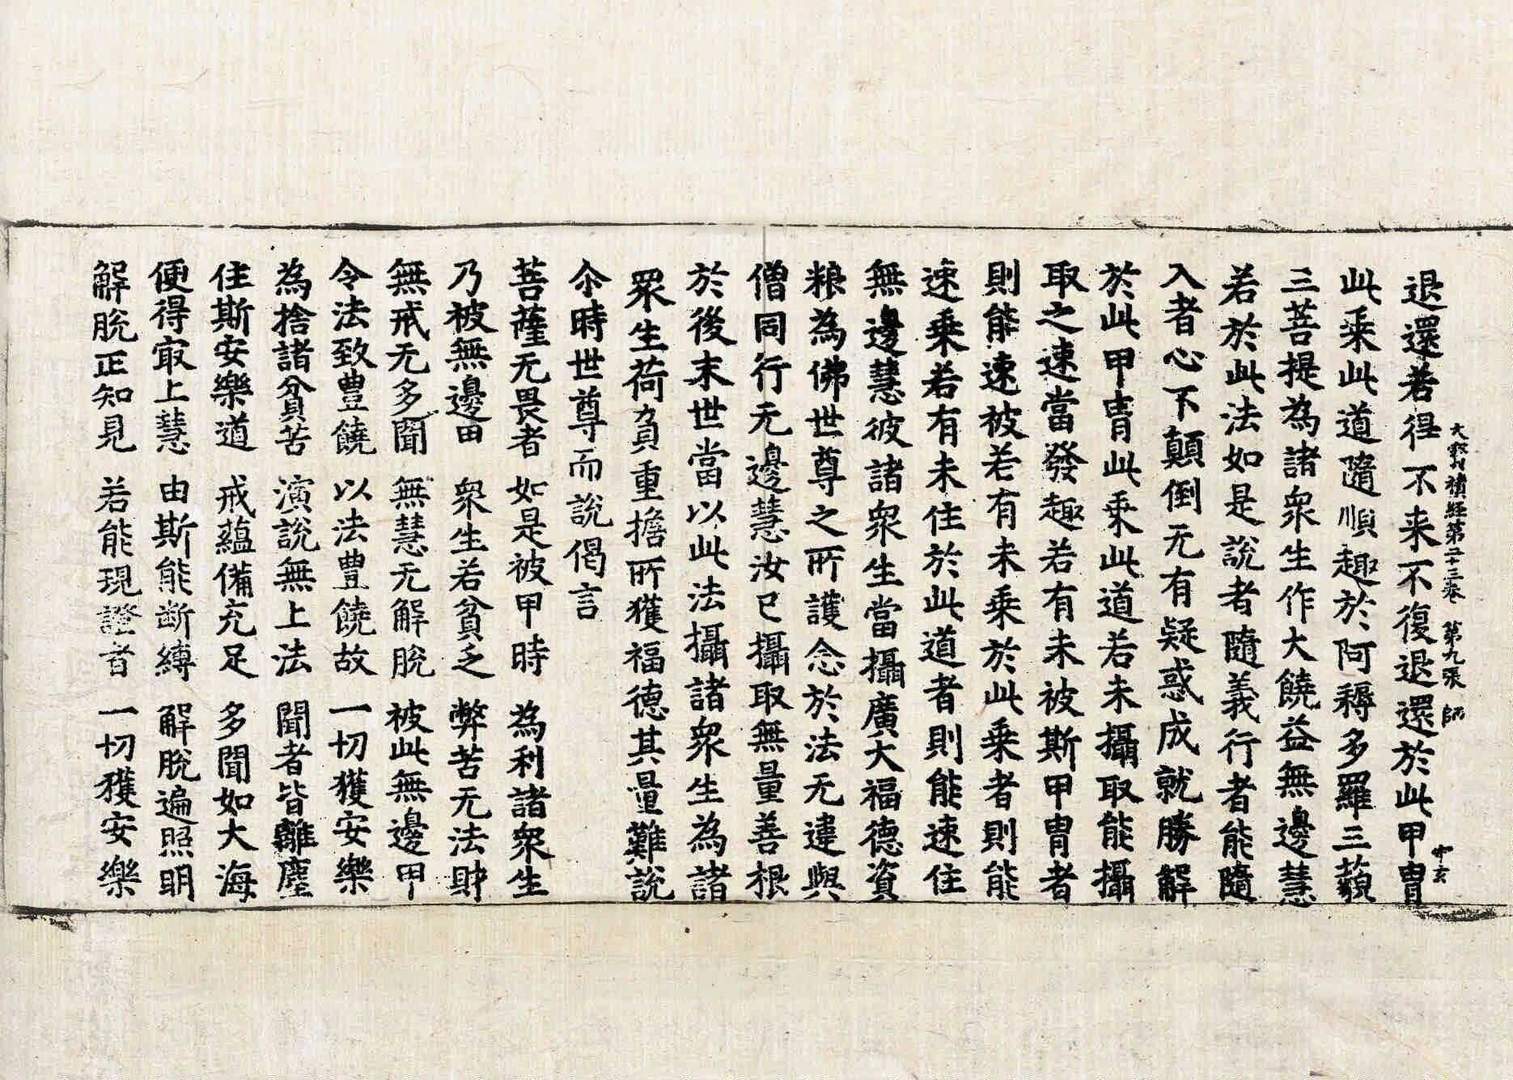 大寳積經第二十三卷 第九張 師
退還若徃不来不復退還於此甲冑
此乗此道隨順趣於阿耨多羅三藐
三菩提為諸衆生作大饒益無邊慧
若於此法如是說者隨義行者能隨
入者心不顛倒无有疑惑成就勝解
於此甲冑此乗此道若未攝取能攝
取之速當發趣若有未被斯甲冑者
則能速被若有未乗於此乗者則能
速乗若有未住於此道者則能速住
無邊慧彼諸衆生當攝廣大福德資
粮為佛世尊之所護念於法无違與
僧同行无邊慧汝已攝取無量善根
於後末世當以此法攝諸衆生為諸
衆生荷負重擔所獲福德其量難說
尒時世尊而說偈言
菩薩无畏者 如是被甲時 為利諸衆生
乃被無邊田 衆生若貧乏 弊苦无法財
無戒无多聞 無慧无解脫 被此無邊甲
令法致豊饒 以法豊饒故 一切獲安樂
為捨諸貧苦 演說無上法 聞者皆離塵
住斯安樂道 戒蘊備充足 多聞如大海
便得冣上慧 由斯能断縛 解脫遍照明
解脫正知見 若能現證者 一切獲安樂